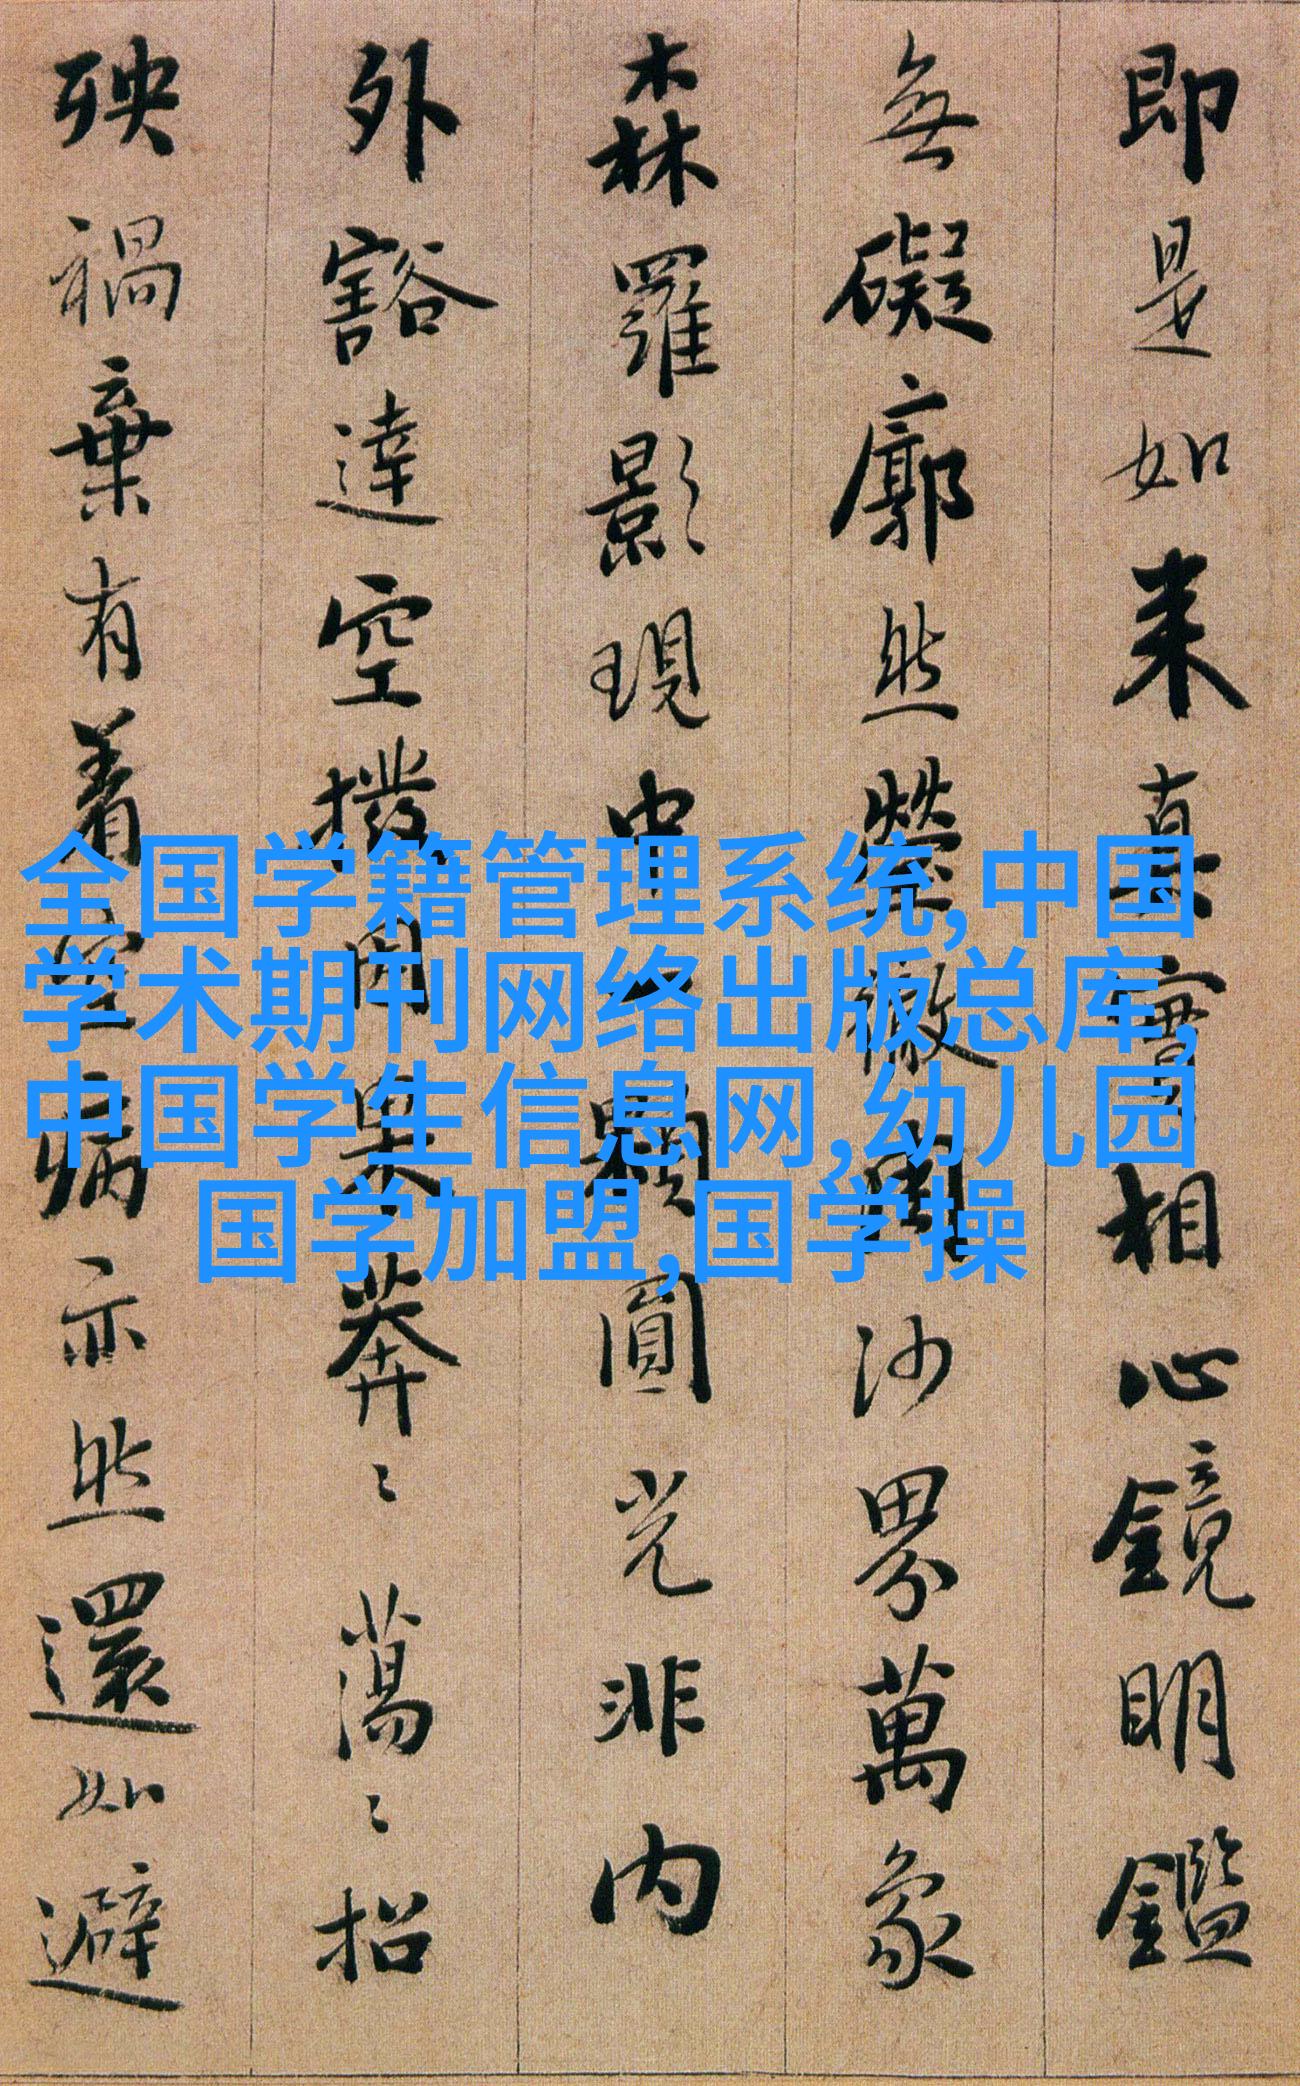 即是如来真實相心鏡明鑑
無礙廓然瑩徹周沙界萬象
森羅影現中一顆圓光非内
外豁達空撥因果莽〻蕩〻招
殃禍棄有着空病亦然還如避
全国学籍管理系统,中国
学术期刊网络出版总库,
中国学生信息网,幼儿园
国学加盟,国学操